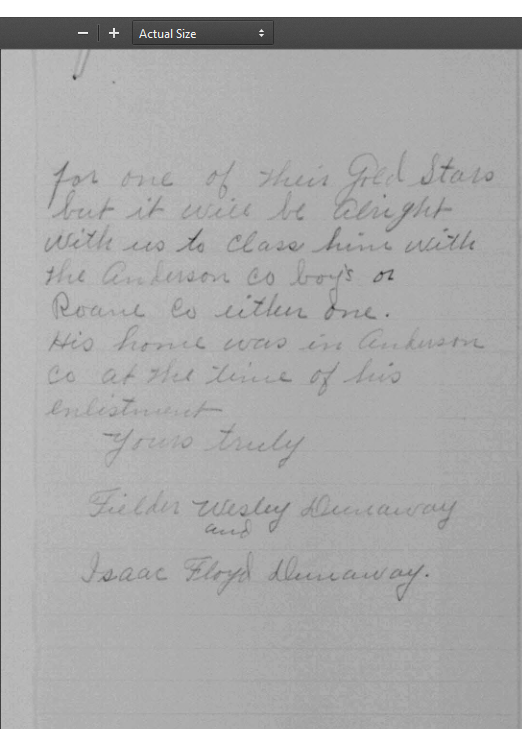 − + Actual Size
for one of their Gold Stars
but it will be alright
with us to class him with
the Anderson Co boy's or
Roane Co either one.
His home was in Anderson
Co at the time of his
enlistment
Yours truly
Fielder Wesley Dunaway
and
Isaac Floyd Dunaway.